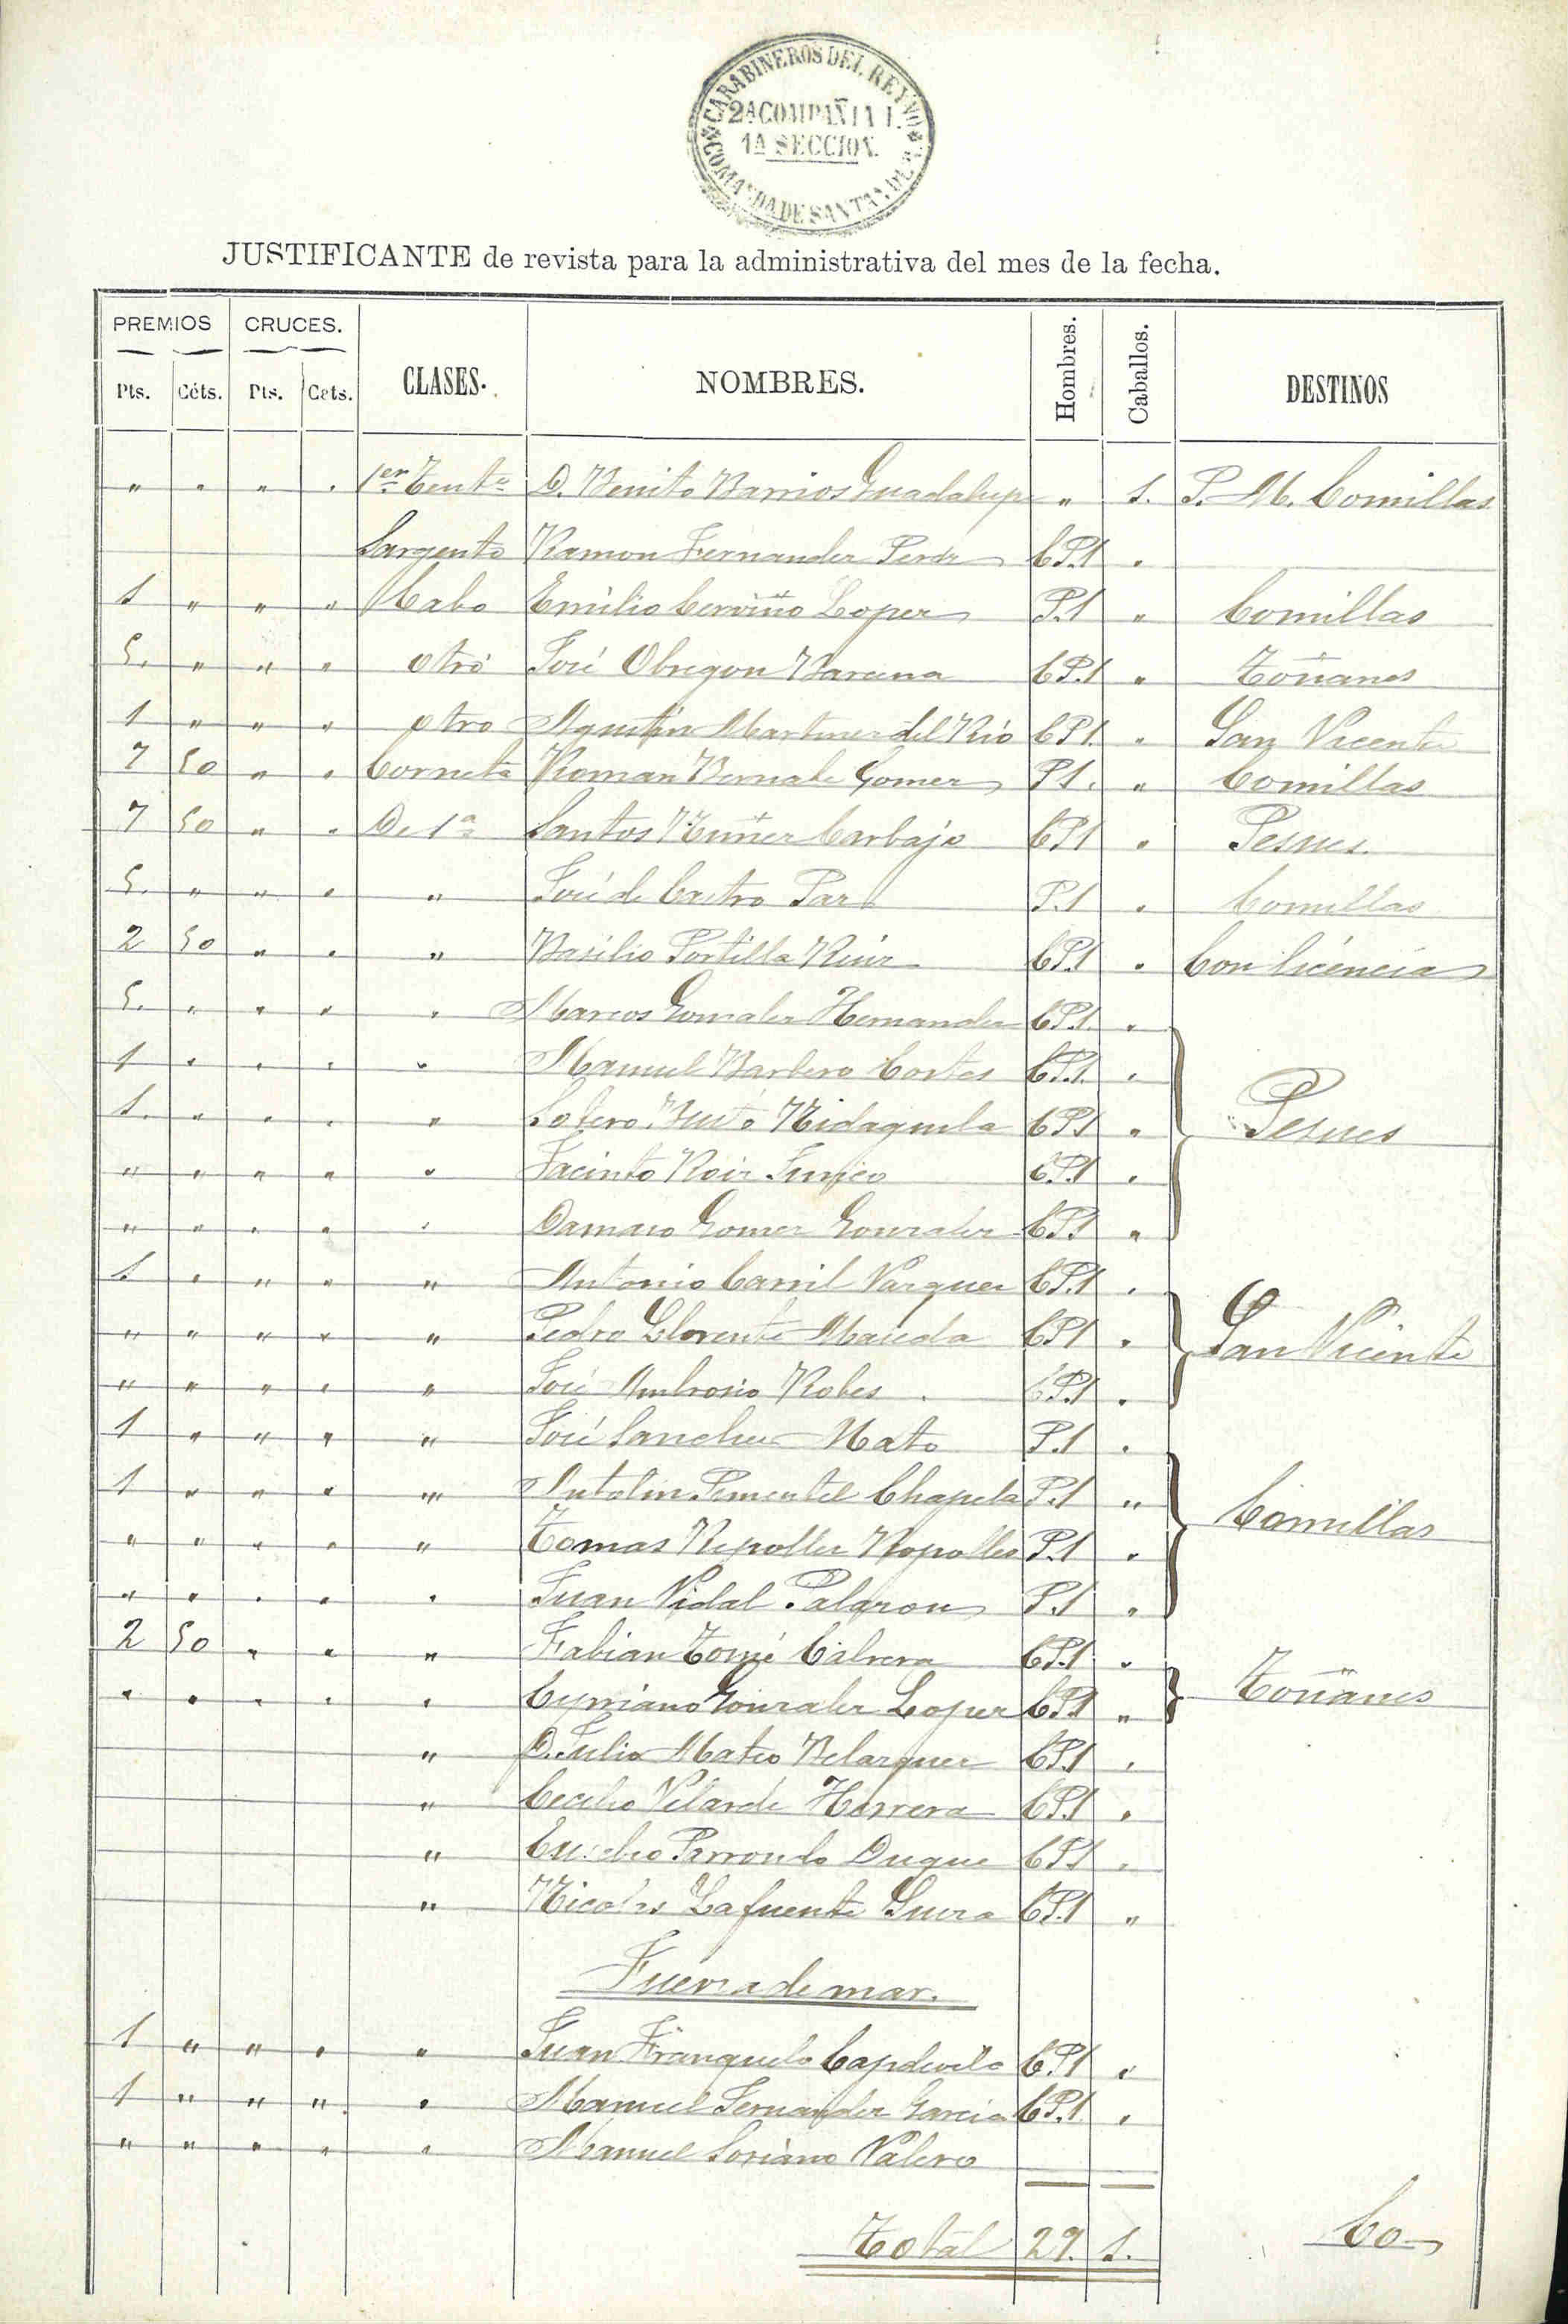 CARABINEROS DEL REYNO
2A COMPAÑIA
1A SECCION.
COMANDA DE SANTANDER
JUSTIFICANTE de revista para la administrativa del mes de la fecha.
PREMIOS CRUCES. CLASES. NOMBRES. Hombres. Caballos. DESTINOS
Pts. Céts. Pts. Cets.
" " " " 1er Tente D. Benito Barrios Guadalupe " 1. P. M. Comillas
Sargento Ramon Fernandez CP.1 "
1 " " " Cabo Emilio Cerviño Lopez P.1 " Comillas
5. " " " otro José Obregon Barcena CP.1 " Toñanes
1 " " " otro Agustin Martinez del Rio CP1. " San Vicente
7 50 " " Corneta Roman Bernabe Gomez P1. " Comillas
7 50 " " De 1a Santos Nuñez Carbajo CP1 " Pesues.
5. " " " " José de Castro Paz P.1 " Comillas
2 50 " " " Basilio Portilla Ruiz CP.1 " Con licencia
5. " " " " Marcos Gonzalez Hernandez CP.1. "
1 " " " " Manuel Barbero Cortes CP.1. "
1. " " " " Sotero CP1 " Pesues
" " " " " Jacinto Roiz CP.1 "
" " " " " Damaso Gomez Gonzalez CP1 "
1. " " " " Antonio Carril Vazquez CP.1 "
" " " " " Pedro Llorente Maseda CP1 " San Vicente
" " " " " José Ambrosio Robes CP.1 "
1 " " " " José Sanchez Mato P.1 "
1 " " " " Antolin Pementel Chapela P.1 " Comillas
" " " " " Tomas Repolles Ropolles P.1 "
" " " " " Juan Vidal Palaron P.1 "
2 50 " " " Fabian Tomé Cabrera CP.1 "
" " " " " Cipriano Gonzalez Lopez CP.1 " Toñanes
" D. Julio Mateo Velazquez CP.1 "
" Cecilio Velarde Herrera CP.1 "
" Eusebio Parrondo Duque CP1 "
" Nicolas Lafuente CP.1 "
Fuerza de mar.
1 " " " " Juan Franquelo Capdevila CP.1 "
1 " " " " Manuel Fernandez Garcia CP.1 "
" " " " " Manuel Soriano Valero
Total 29. 1. Co